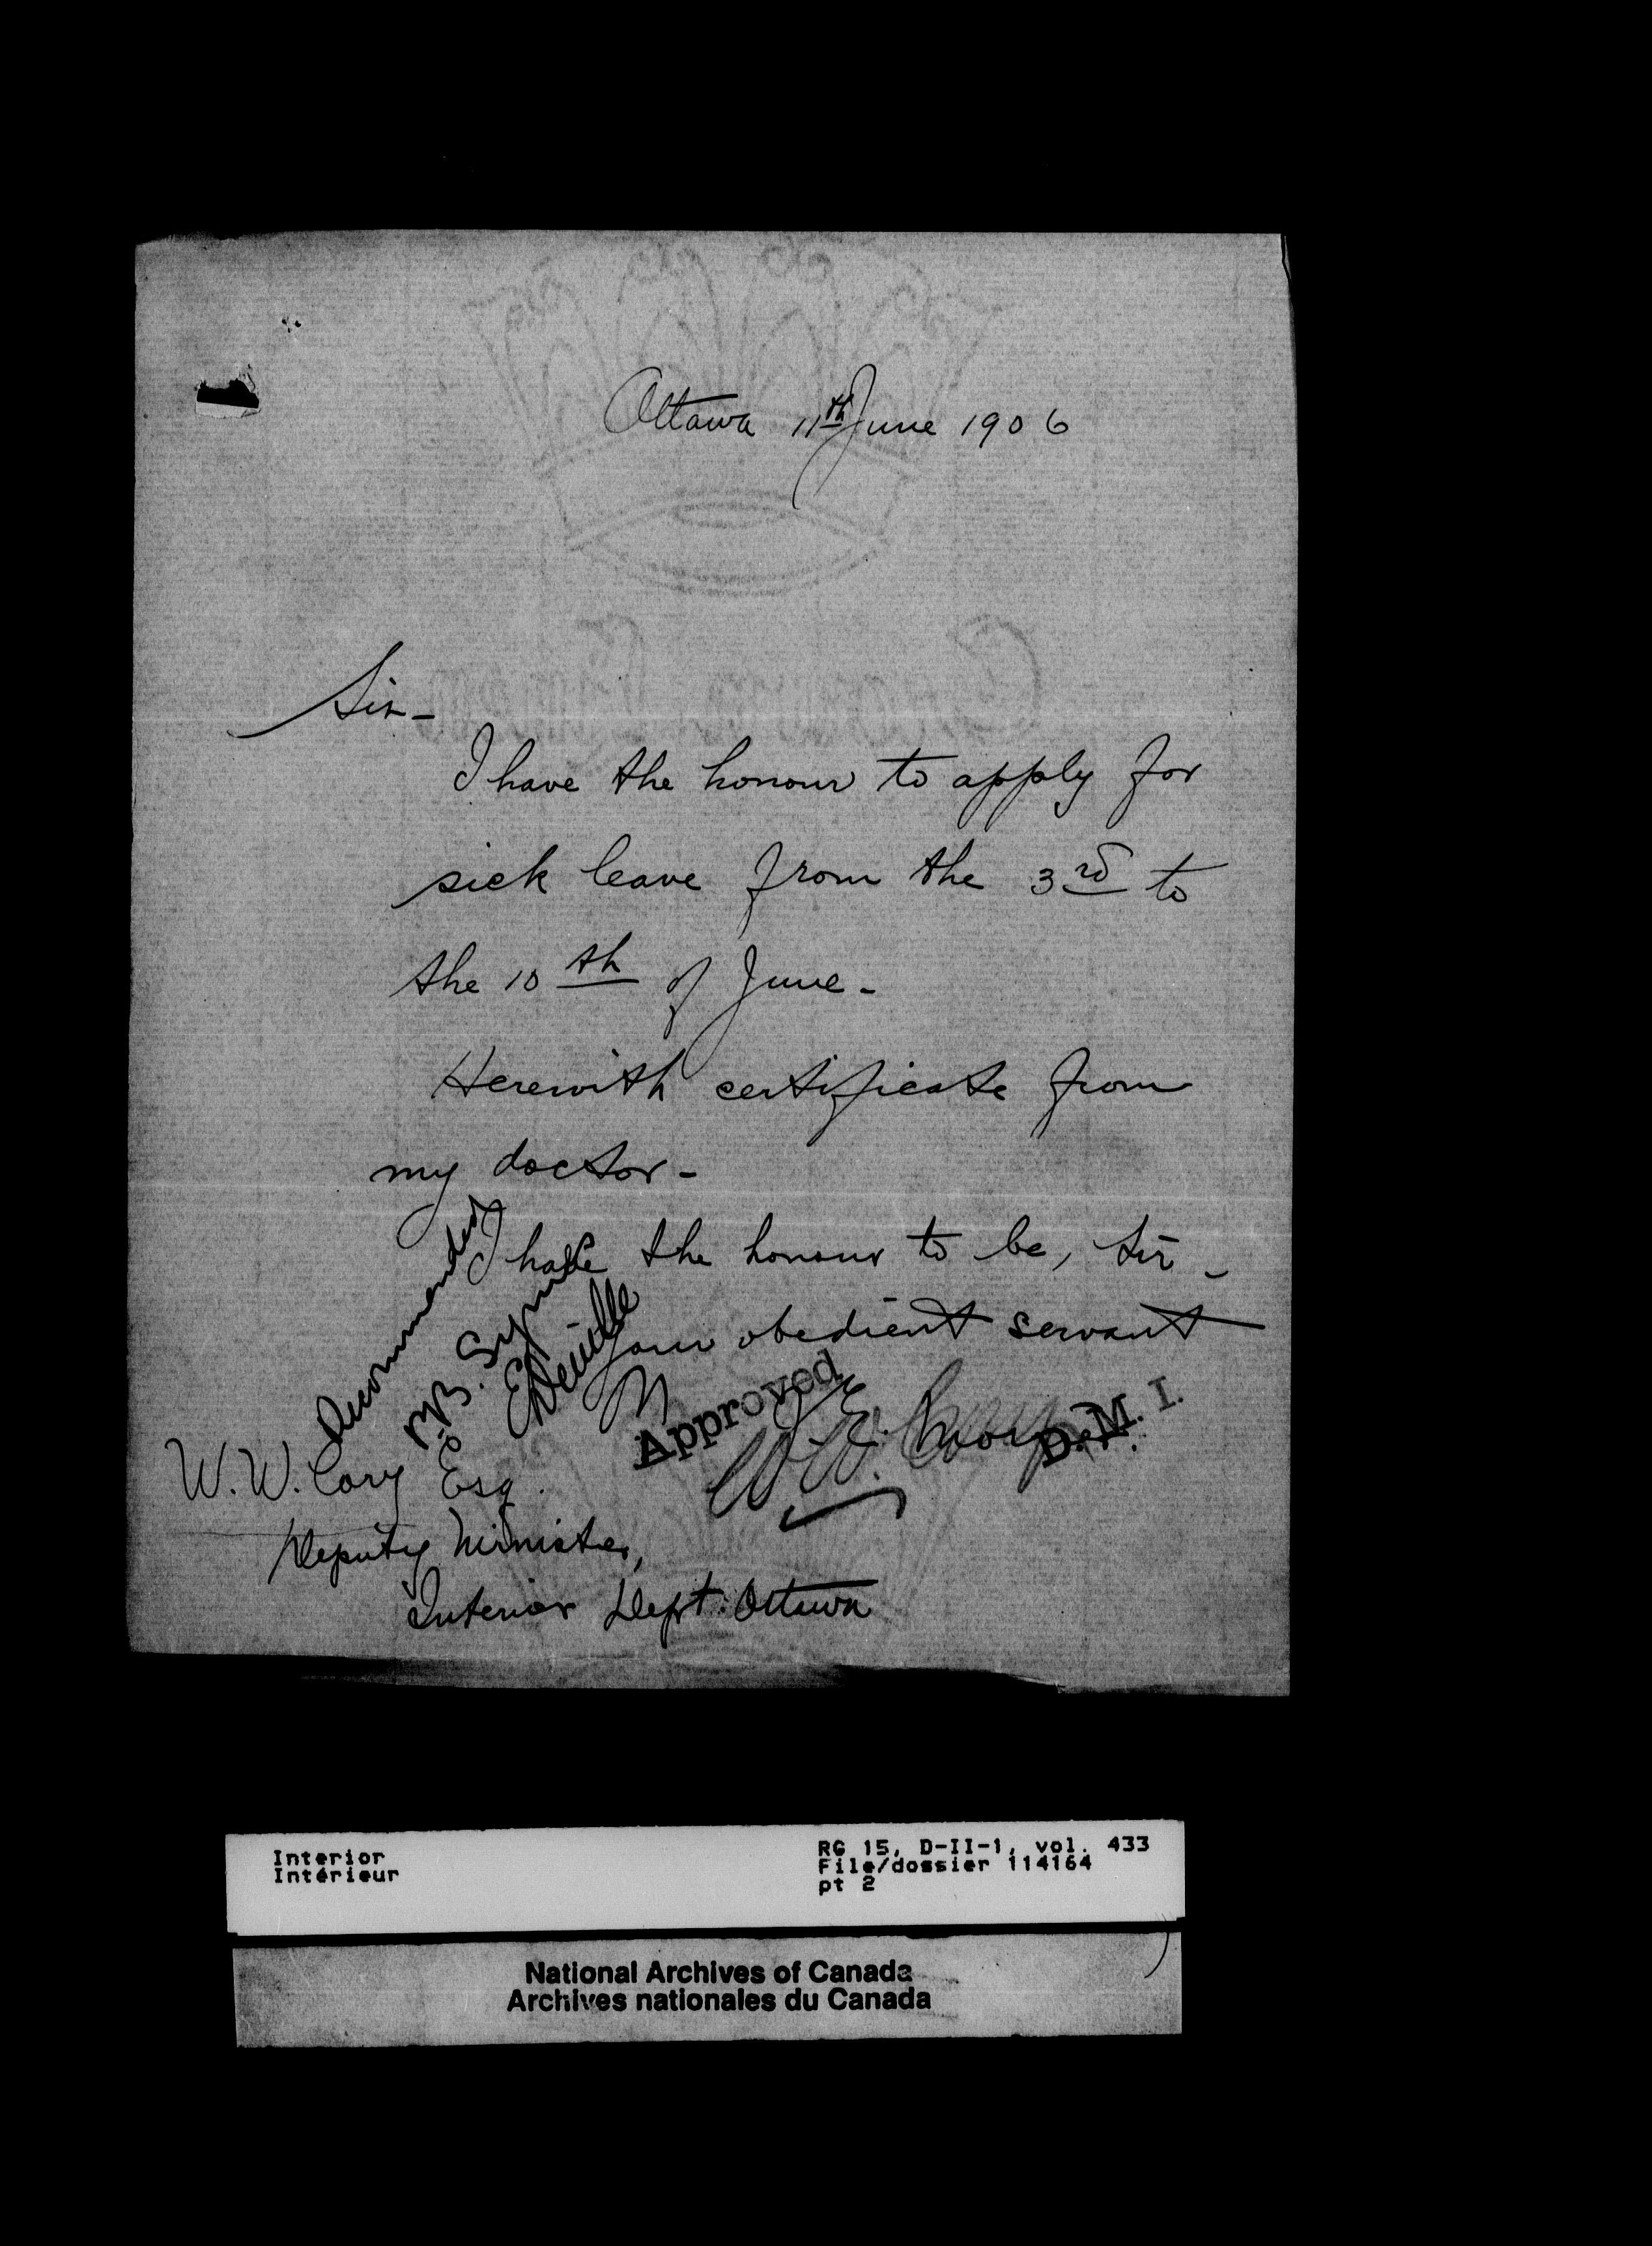 Ottawa 11th June 1906
Sir-
I have the honour to apply for
sick leave from the 3rd to
the 10th of June-
Herewith certificate from
my doctor-
I have the honour to be, Sir-
Your obedient servant
Recommended
P.B. Symes
E Deville
Approved
W.W. Cory
D.M.I.
W.W. Cory Esq.
Deputy Minister,
Interior Dept. Ottawa
Interior
Intérieur
RG 15, D-II-1, vol. 433
File/dossier 114164
pt 2
National Archives of Canada
Archives nationales du Canada